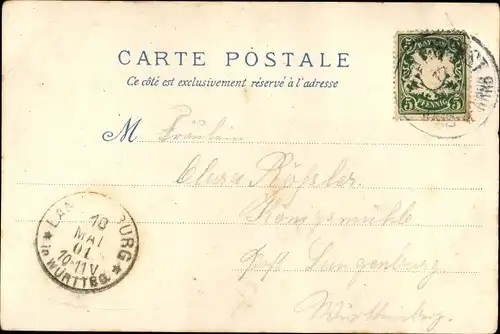 CARTE POSTALE
Ce côté est exclusivement réservé à l'adresse
5 PFENNIG 5
M Fräulein
Clara Rößler
Königsmühle
Post Langenburg
Württemberg.
LANGENBURG
18
MAI
01
10-11V
in WÜRTTBG.